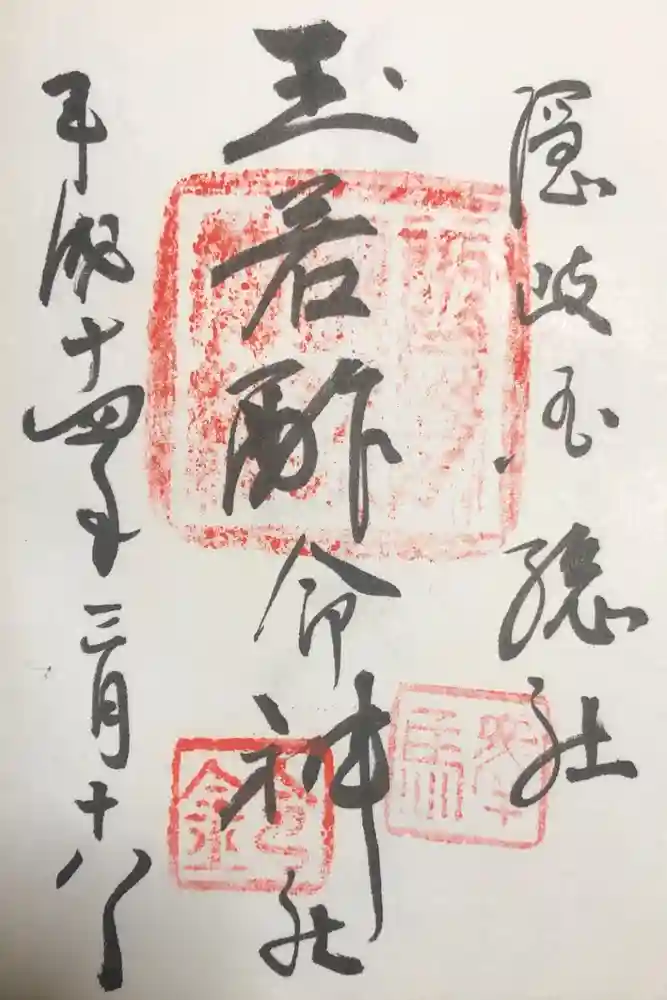 隠岐国總社
玉若酢命神社
平成十四年三月十八日